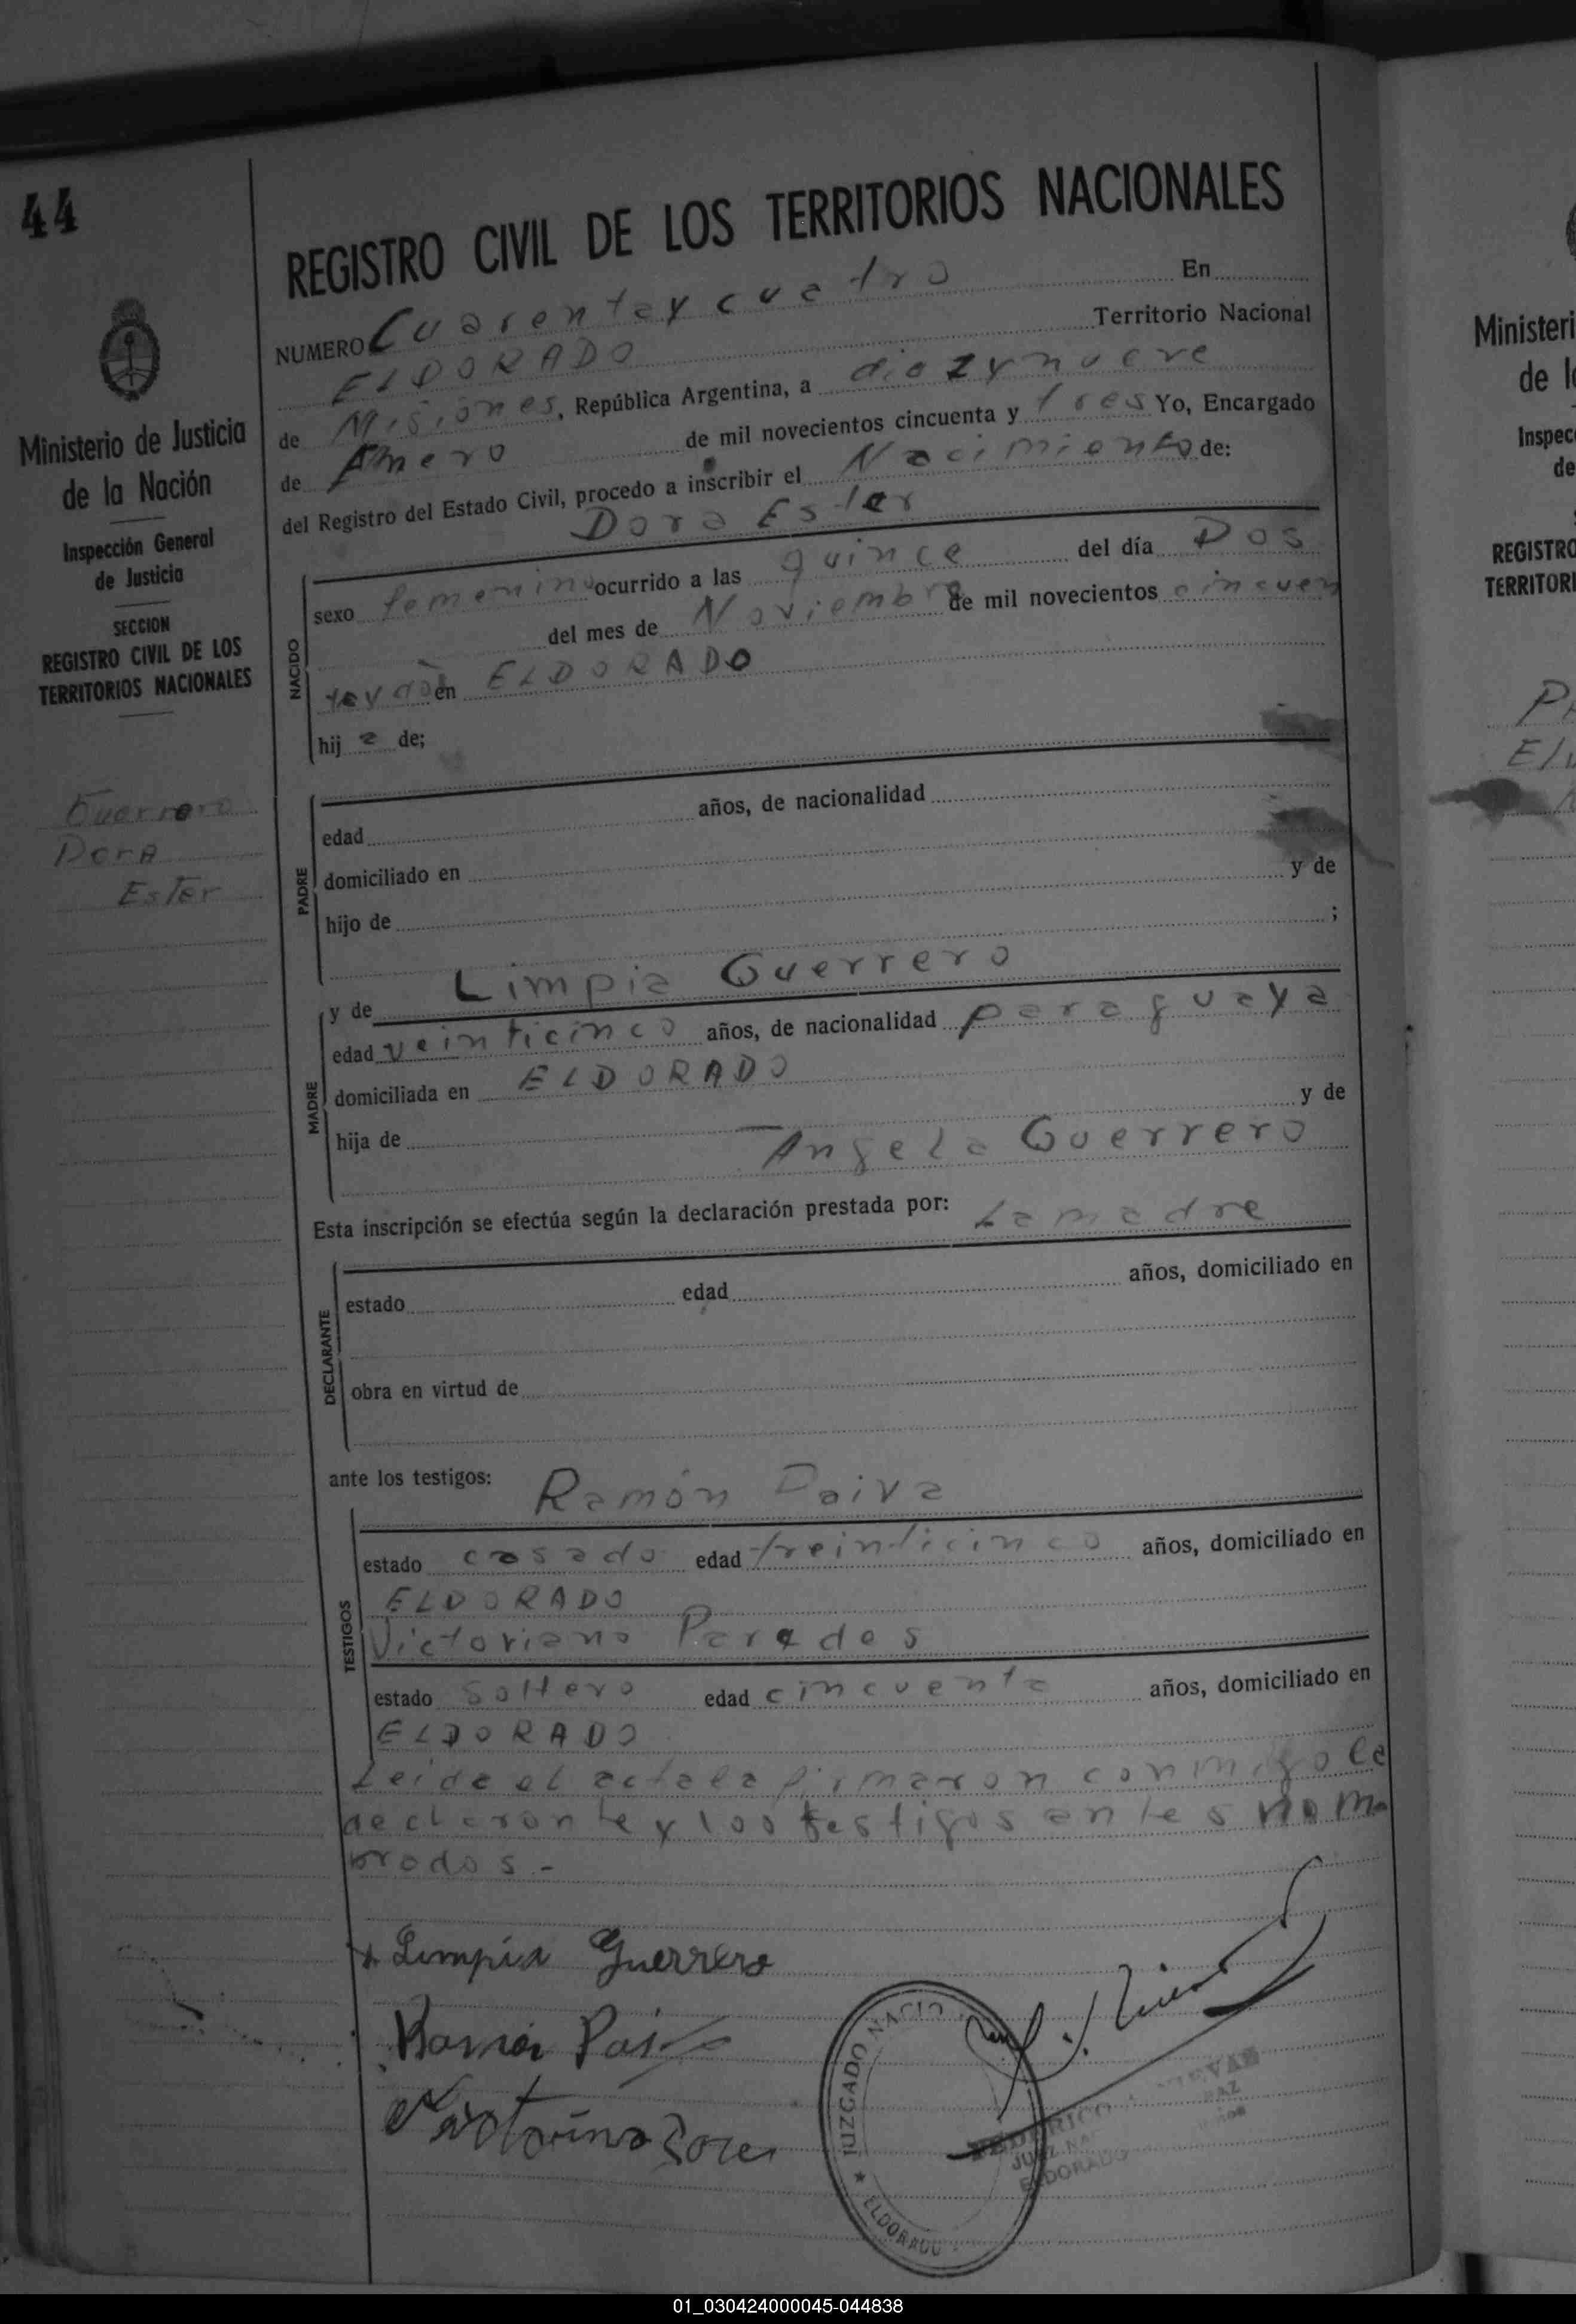 44
Ministerio de Justicia
de la Nación
Inspección General
de Justicia
SECCION
REGISTRO CIVIL DE LOS
TERRITORIOS NACIONALES
Guerrero
Dora
Ester
REGISTRO CIVIL DE LOS TERRITORIOS NACIONALES
NUMERO Cuarenta y cuatro En
ELDORADO Territorio Nacional
de Misiones, República Argentina, a diez y nueve
de Enero de mil novecientos cincuenta y tres Yo, Encargado
del Registro del Estado Civil, procedo a inscribir el Nacimiento de:
Dora Ester
NACIDO
sexo femenino ocurrido a las quince del día Dos
del mes de Noviembre de mil novecientos cincuen
tay dos en ELDORADO
hij a de;
PADRE
edad años, de nacionalidad
domiciliado en
hijo de y de
;
MADRE
y de Limpia Guerrero
edad veinticinco años, de nacionalidad paraguaya
domiciliada en ELDORADO
hija de y de
Angela Guerrero
Esta inscripción se efectúa según la declaración prestada por: La madre
DECLARANTE
estado edad años, domiciliado en
obra en virtud de
ante los testigos: Ramón Paiva
TESTIGOS
estado casado edad treinticinco años, domiciliado en
ELDORADO
Victoriano Paredes
estado soltero edad cincuenta años, domiciliado en
ELDORADO
Leida el acta la firmaron conmigo la
declarante y los testigos antes nom
brados.-
Limpia Guerrero
Ramón
JUZGADO NACIO
ELDORADO
FEDERICO
JUEZ NA PAZ
ELDORADO
Ministeri
de l
Inspec
de
REGISTRO
TERRITORI
01_030424000045-044838